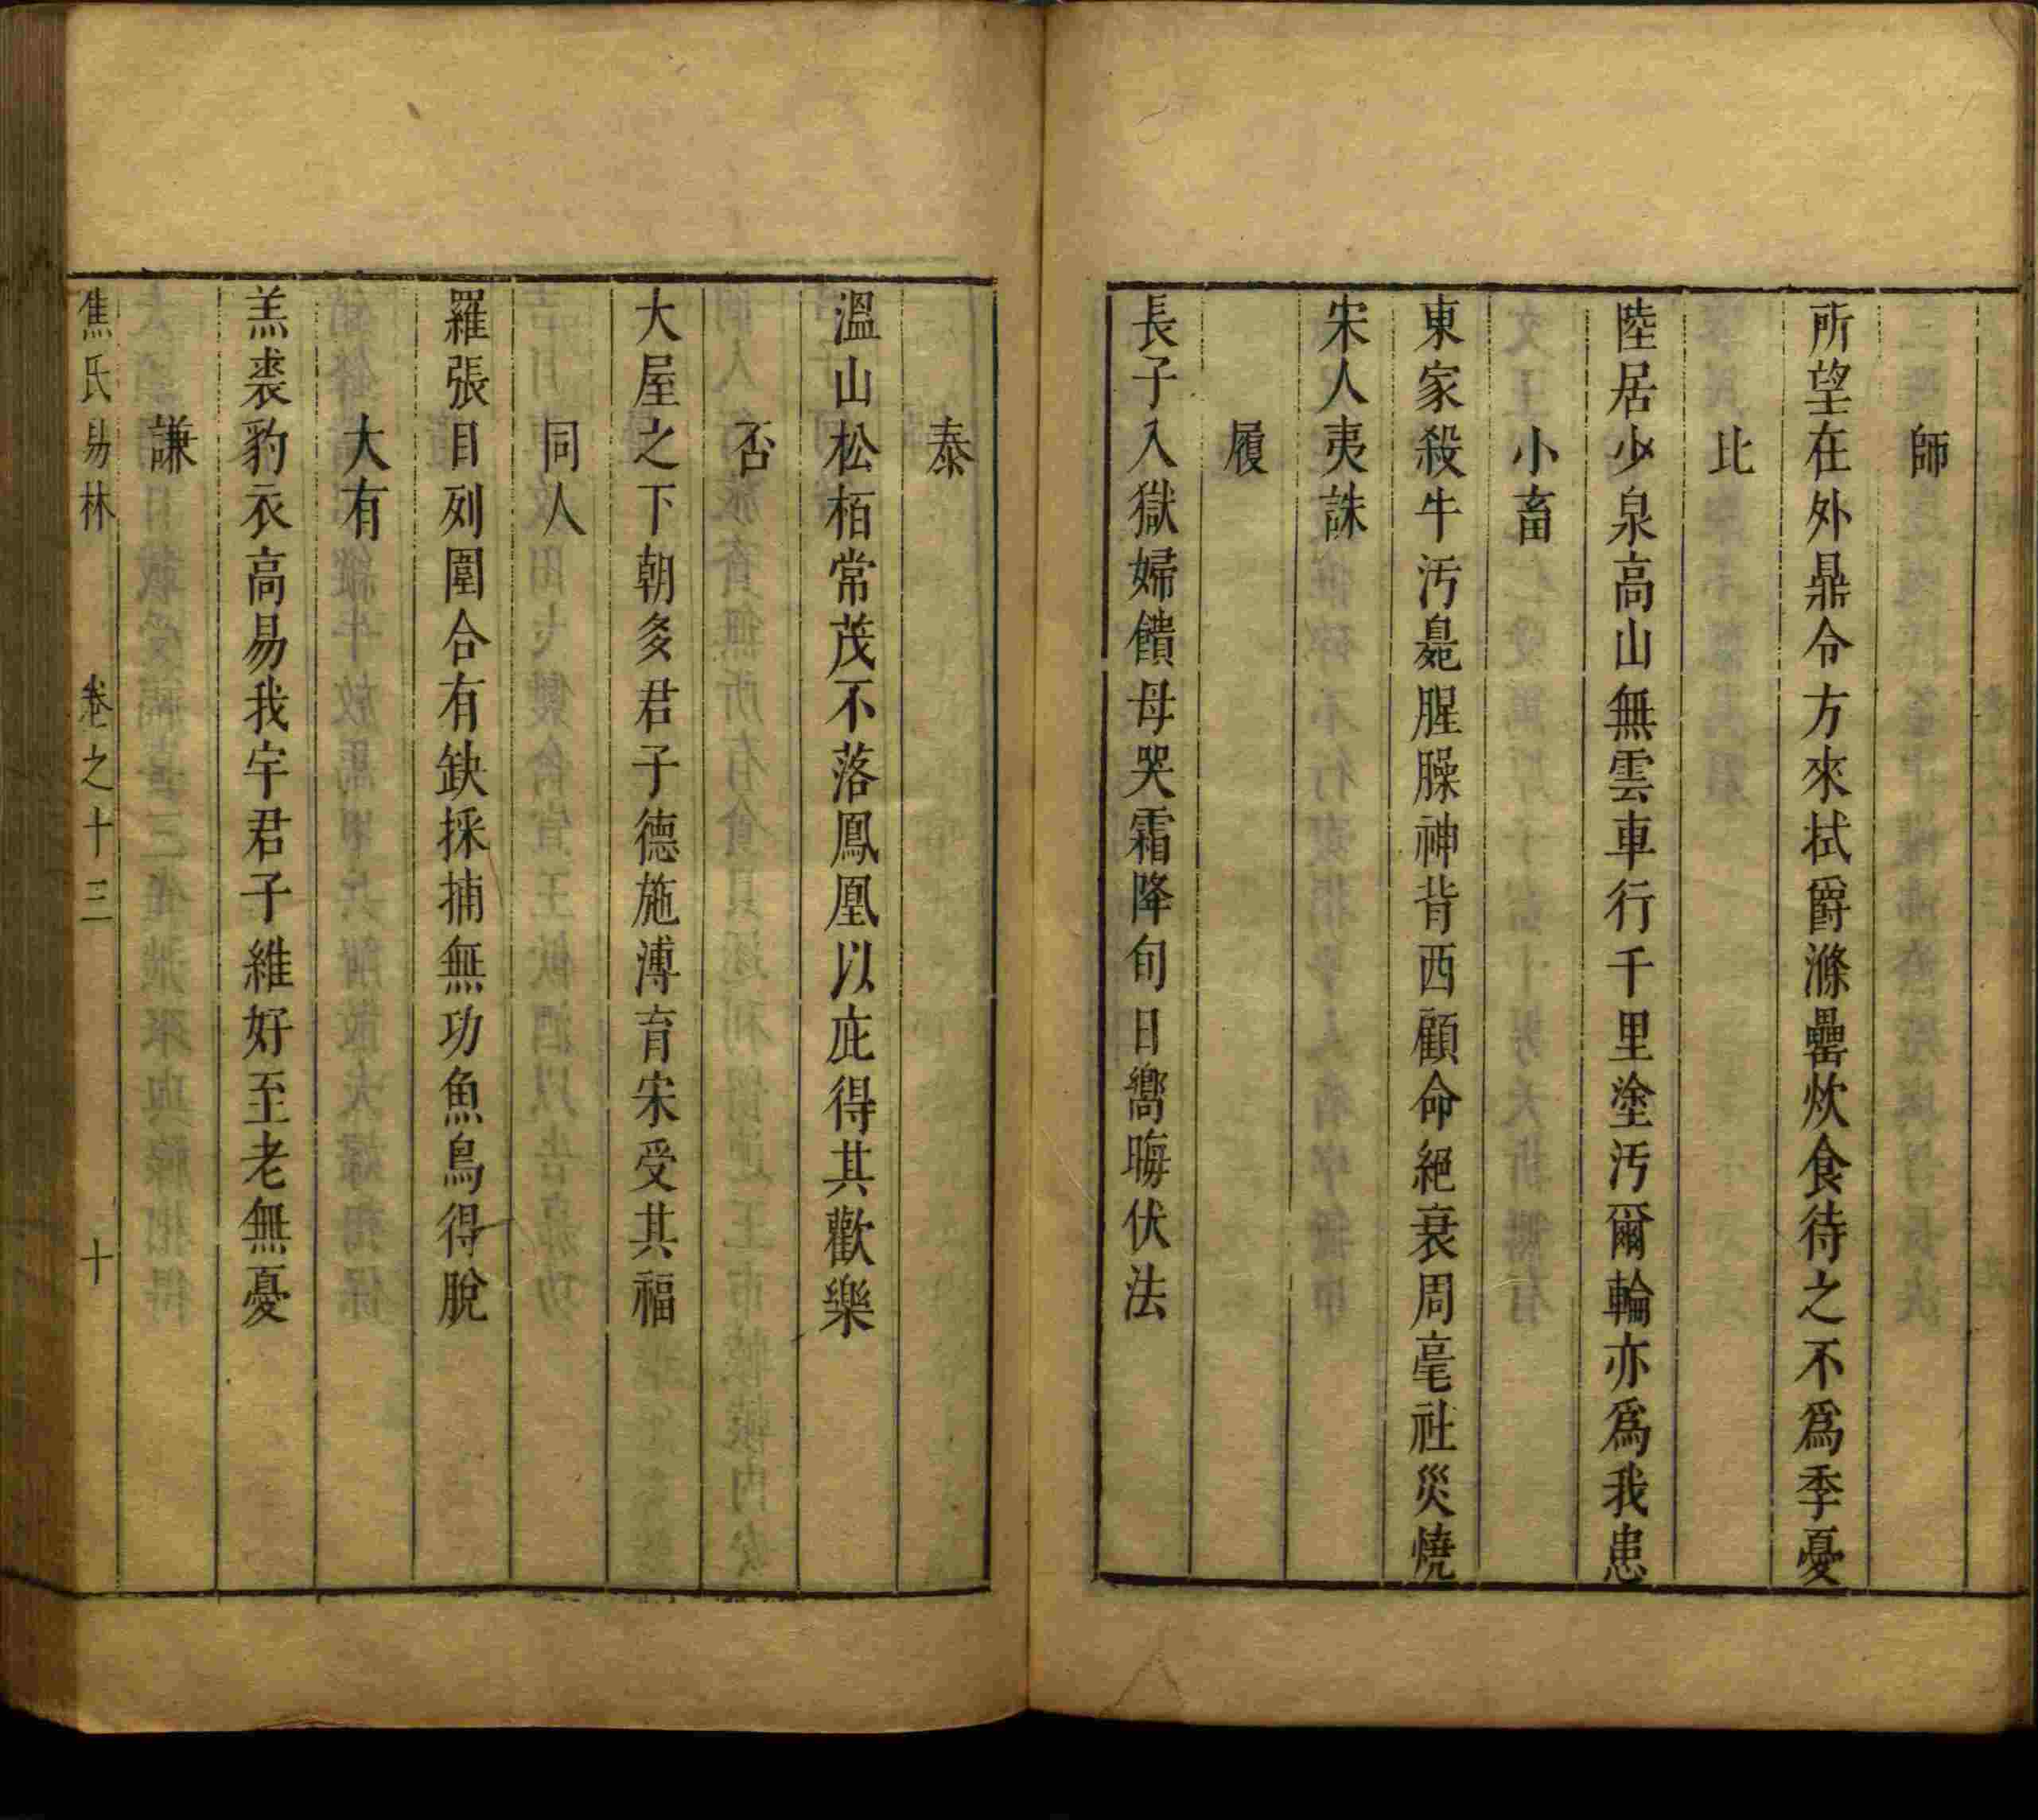 師
所望在外鼎令方來拭爵滌罍炊食待之不爲季憂
比
陸居少泉高山無雲車行千里塗汚爾輪亦爲我患
小畜
東家殺牛汚臰腥臊神背西顧命絕衰周亳社災燒
宋人夷誅
履
長子入獄婦饋母哭霜降旬日嚮晦伏法
泰
溫山松栢常茂不落鳳凰以庇得其歡樂
否
大屋之下朝多君子德施溥育宋受其福
同人
羅張目列圍合有缺採捕無功魚鳥得脫
大有
羔裘豹衣高易我宇君子維好至老無憂
謙
焦氏易林 卷之十三 十